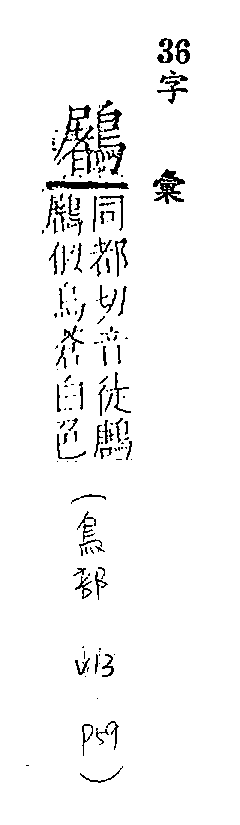 36 字彙
鷵
同都切音徒鶶
鷵似烏蒼白色
(鳥部 v13 p59)